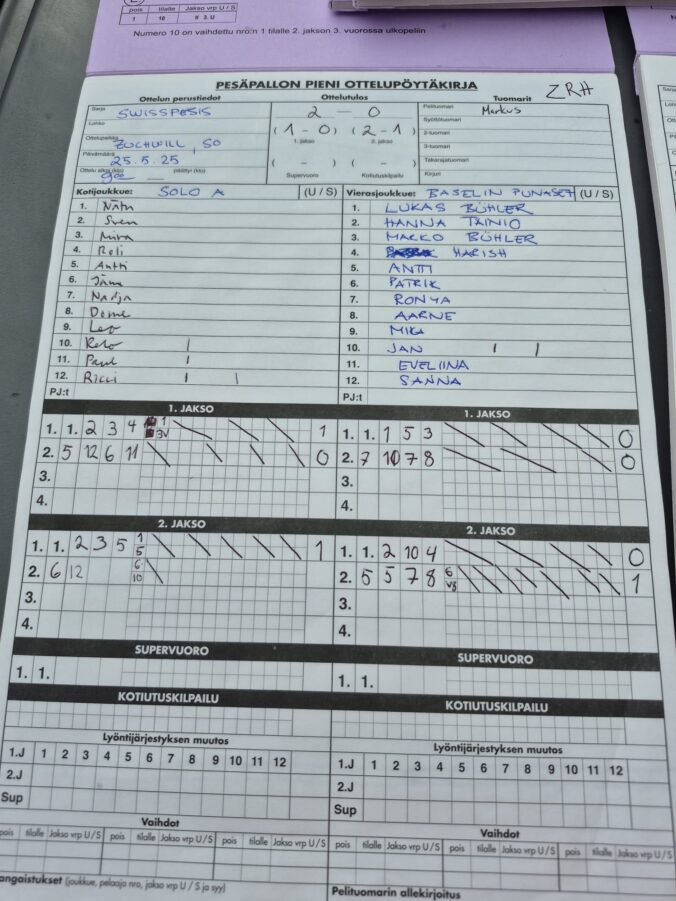 pois tilalle Jakso vrp U / S
1 10 II 3. U
Numero 10 on vaihdettu nro:n 1 tilalle 2. jakson 3. vuorossa ulkopeliin
PESÄPALLON PIENI OTTELUPÖYTÄKIRJA
ZRH
Ottelun perustiedot Ottelutulos Tuomarit
Sarja SWISSPESIS 2 – 0 Pelituomari Markus
Lohko Syöttötuomari
Ottelupaikka ZUCHWILL, SO (1 – 0) (2 – 1) 2-tuomari
1. jakso 2. jakso 3-tuomari
Päivämäärä 25.5.25 ( – ) ( – ) Takarajatuomari
Ottelu alkoi (klo) päättyi (klo) Supervuoro Kotiutuskilpailu Kirjuri
Kotijoukkue: SOLO A (U / S) Vierasjoukkue: BASELIN PUNASET (U / S)
1. Nätu 1. LUKAS BÜHLER
2. Sven 2. HANNA TAINIO
3. Mira 3. MARKO BÜHLER
4. Roli 4. HARISH
5. Antti 5. ANTTI
6. 6. PATRIK
7. Nadja 7. RONYA
8. Dome 8. AARNE
9. Leo 9. MIKA
10. Reto 10. JAN
11. Paul 11. EVELIINA
12. Ricci 12. SANNA
PJ:t PJ:t
1. JAKSO 1. JAKSO
1. 1. 2 3 4 1 3V 1 1. 1. 1 5 3 0
2. 5 12 6 11 0 2. 7 10 7 8 0
3. 3.
4. 4.
2. JAKSO 2. JAKSO
1. 1. 2 3 5 1 5 1 1. 1. 2 10 4 0
2. 6 12 6 10 2. 5 5 7 8 6 1
3. 3.
4. 4.
SUPERVUORO SUPERVUORO
1. 1. 1. 1.
KOTIUTUSKILPAILU KOTIUTUSKILPAILU
Lyöntijärjestyksen muutos Lyöntijärjestyksen muutos
1.J 1 2 3 4 5 6 7 8 9 10 11 12 1.J 1 2 3 4 5 6 7 8 9 10 11 12
2.J 2.J
Sup Sup
Vaihdot Vaihdot
pois tilalle Jakso vrp U / S pois tilalle Jakso vrp U / S pois tilalle Jakso vrp U / S pois tilalle Jakso vrp U / S pois tilalle Jakso vrp U / S pois tilalle Jakso vrp U / S
angaistukset (joukkue, pelaaja nro, jakso vrp U / S ja syy) Pelituomarin allekirjoitus